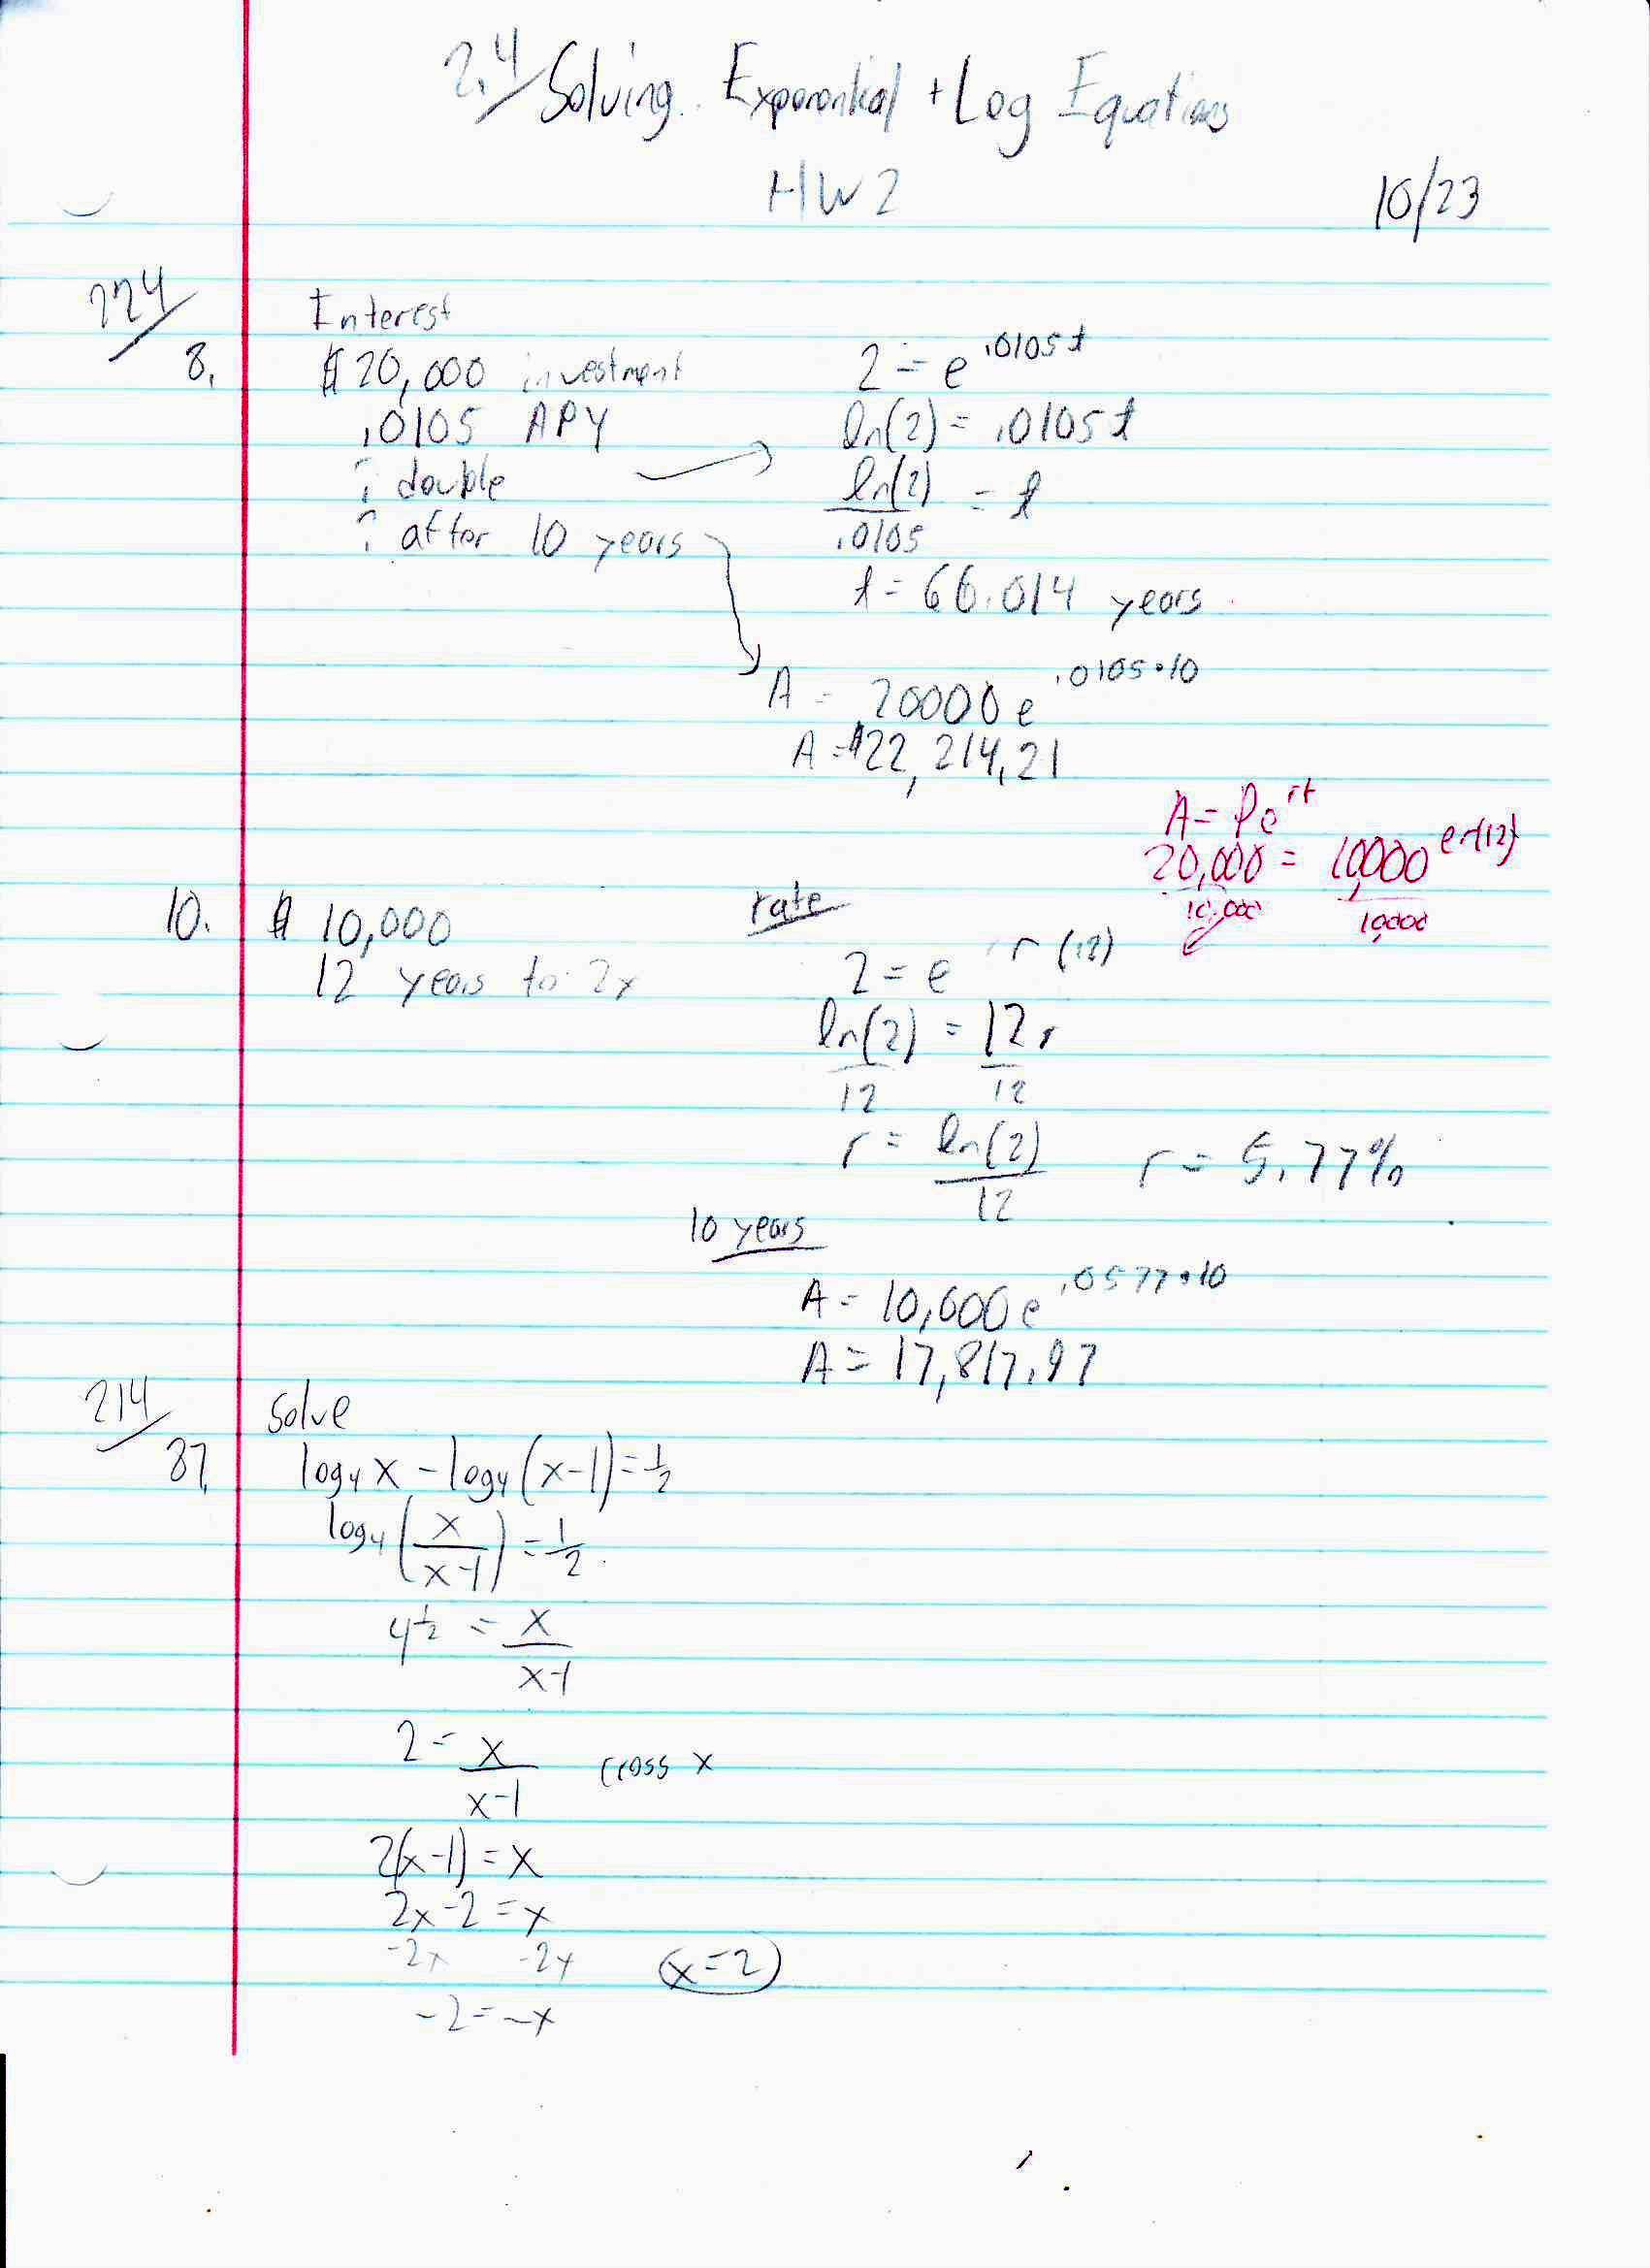 2.4/ Solving Exponential + Log Equations
HW2
10/23
224/
8.
Interest
$20,000 investment
.0105 APY
? double
? after 10 years
2 = e^.0105t
ln(2) = .0105t
ln(2)/.0105 = t
t = 66.014 years
A = 20000e^.0105•10
A = $22,214,21
A = Pe^rt
20,000 = 10,000^er(12)
10,000 10,000
10. $10,000
12 years to 2x
rate
2 = e^r(12)
ln(2) = 12r
12 12
r = ln(2)/12 r = 5.77%
10 years
A = 10,000e^.0577•10
A = 17,817.97
214/
87.
Solve
log₄x - log₄(x-1) = 1/2
log₄(x/x-1) = 1/2
4^1/2 = x/x-1
2 = x/x-1 cross x
2(x-1) = x
2x-2 = x
-2x -2x
x=2
-2 = -x